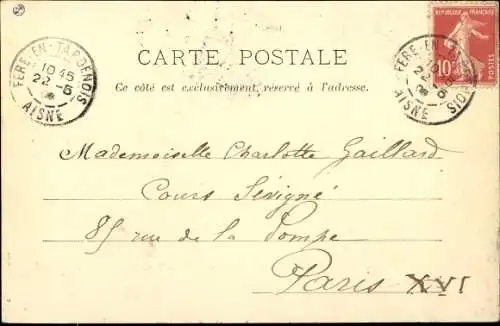 RÉPUBLIQUE FRANÇAISE
10
POSTES
FERE-EN-TARDENOIS
10 45
22 -5
AISNE
FERE-EN-TARDENOIS
10 45
22 -5
AISNE
CARTE POSTALE
Ce côté est exclusivement réservé à l'adresse.
Mademoiselle Charlotte Gaillard
Cours Sévigné
85 rue de la Pompe
Paris XVI